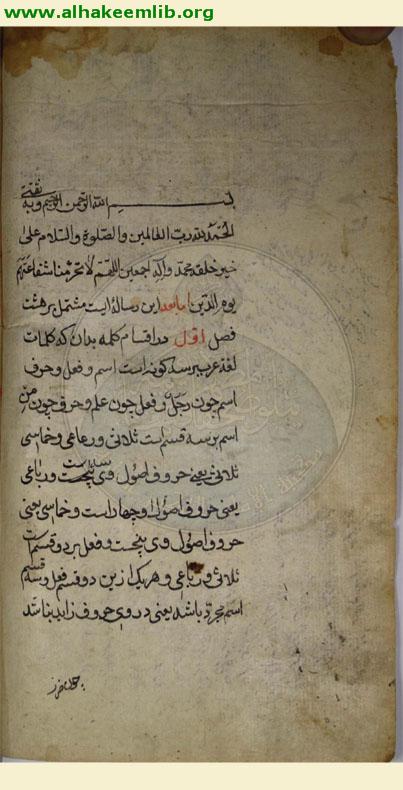 www.alhakeemlib.org
بسم الله الرحمن الرحيم وبه ثقتي
الحمد لله رب العالمين والصلوة والسلام على
خير خلقه محمد وآله اجمعين اللهم لا تحرمنا شفاعتهم
يوم الدين اما بعد اين رساله ايست مشتمل بر هشت
فصل اول در اقسام كلمه بدان كه كلمات
لغة عرب بر سه كونه است اسم و فعل و حرف
اسم چون رجل و فعل چون علم و حرف چون من
اسم بر سه قسم است ثلاثي و رباعي و خماسي
ثلاثي يعني حروف اصول وي سه است و رباعي
يعني حروف اصول او چهار است و خماسي يعني
حروف اصول وي پنجست و فعل بر دو قسم است
ثلاثي و رباعي و هر يك ازين دو قسم فعل و سه قسم
اسم مجرد باشد يعني در وي حروف زايد نباشد